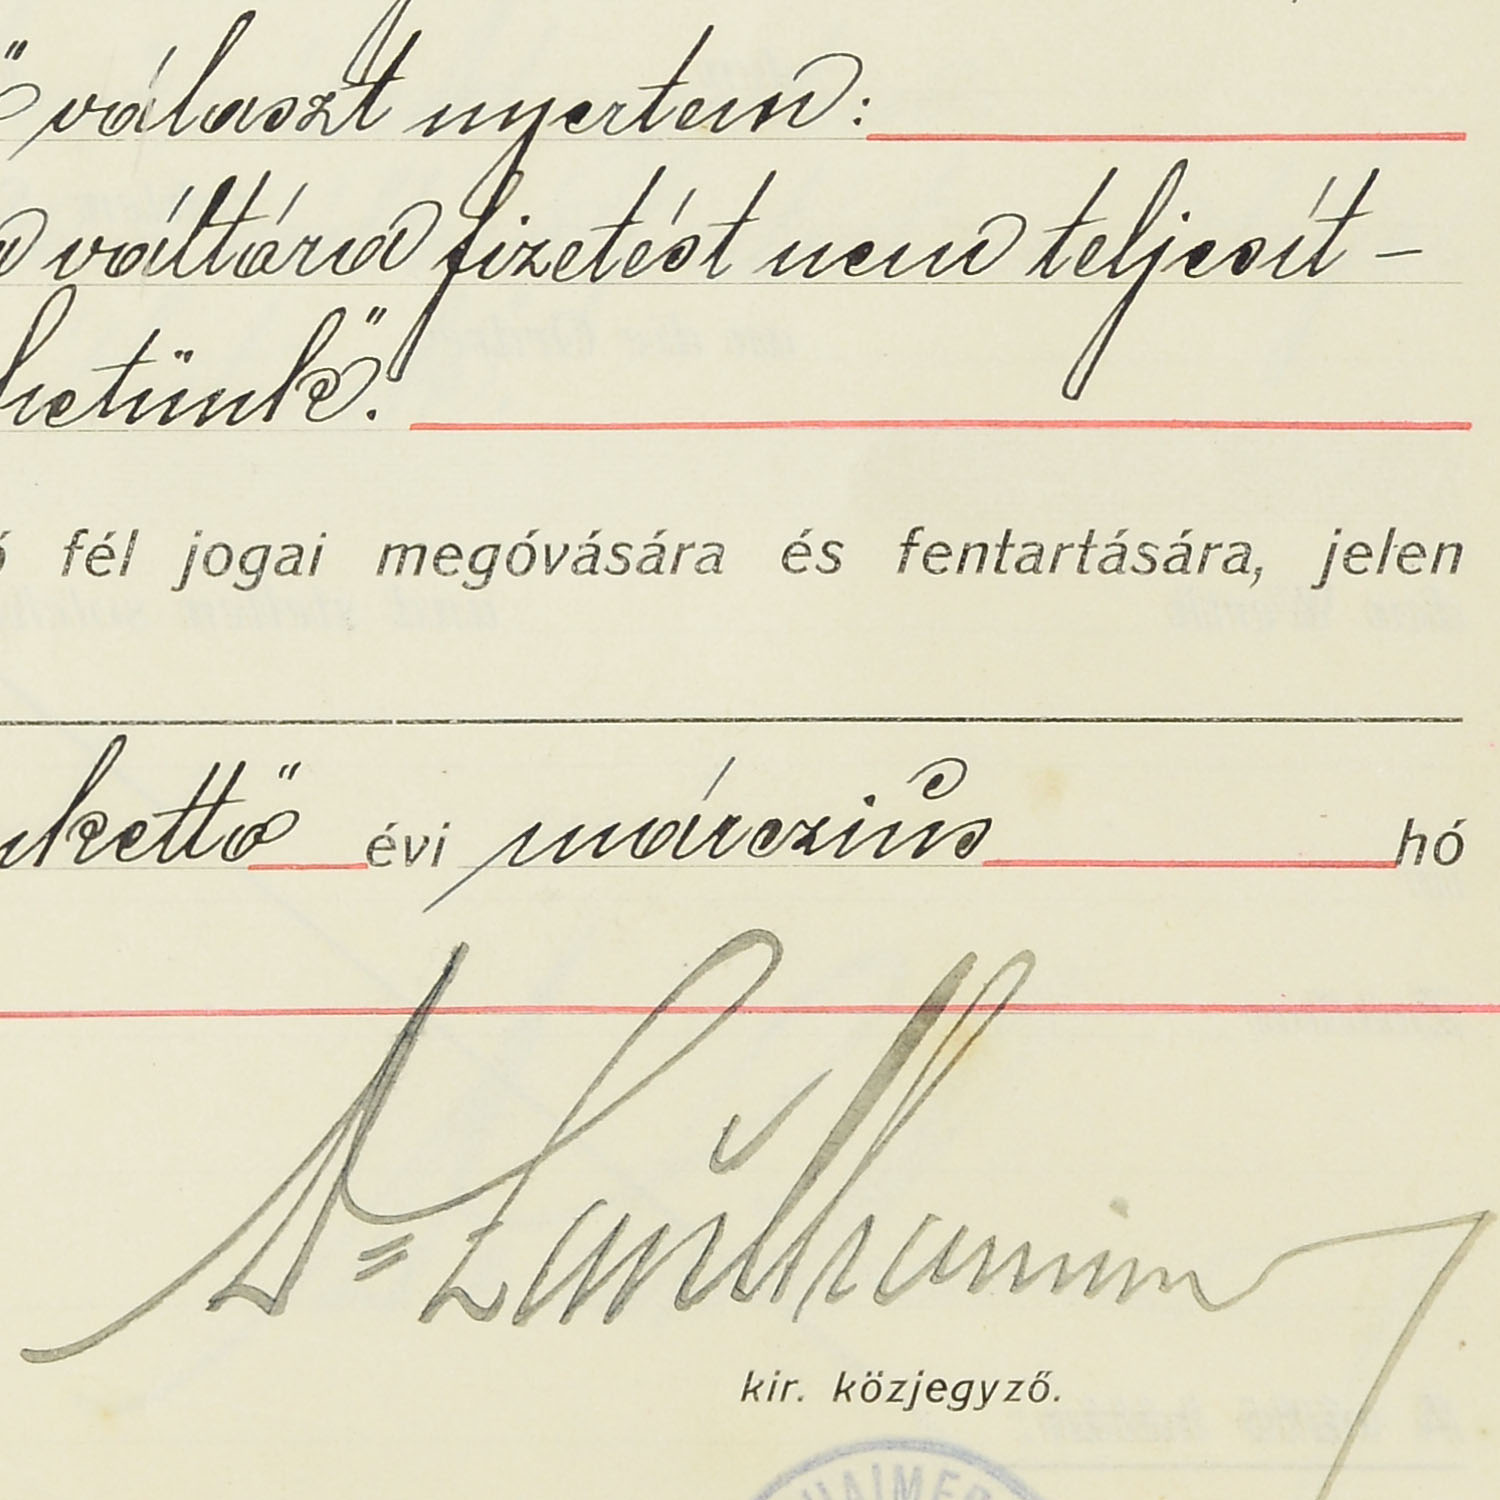 választ nyertem:
a váltóra fizetést nem teljesít-
hetünk".
ó fél jogai megóvására és fentartására, jelen
kettő évi márczius hó
Dr
kir. közjegyző.